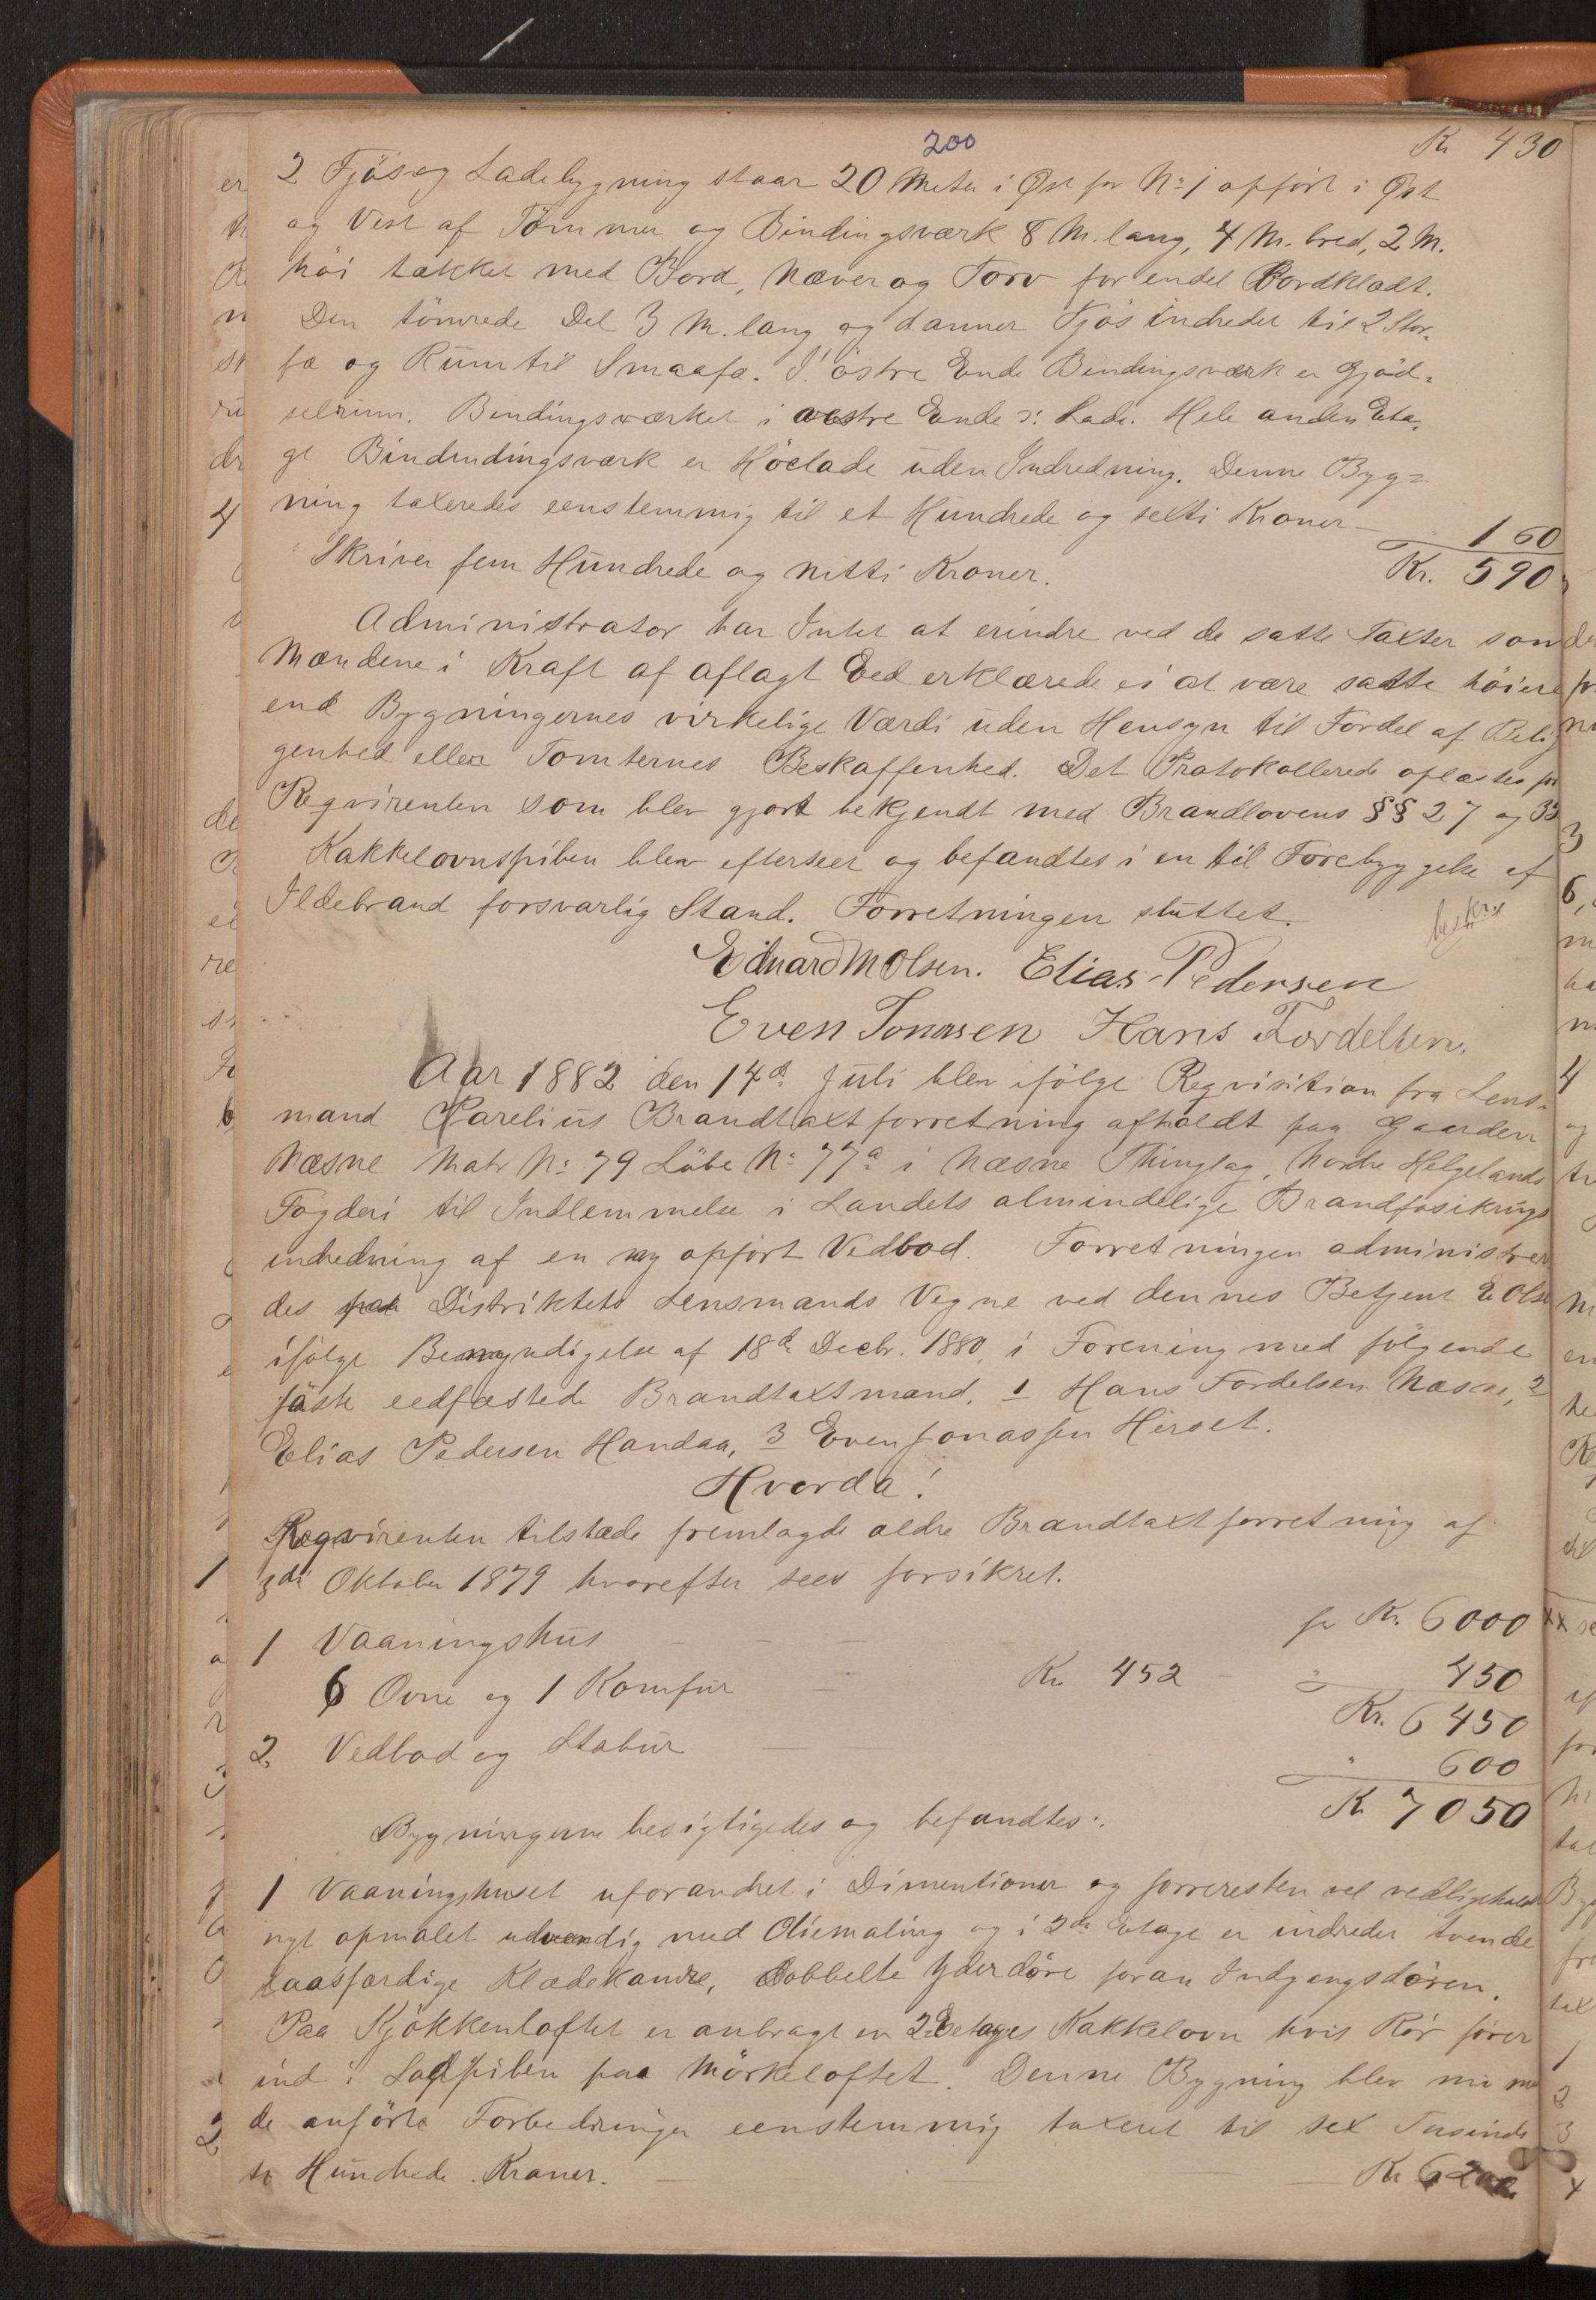 200
Kr 430
2 Fjös og Ladebygning staar 20 Meter i Øst for No 1 opført i Øst
og Vest af Tømmer og Bindingsværk 8 M. lang, 4 M. bred, 2 M.
höi tækket med Bord, Næver og Torv for endel Bordklædt.
Den tömrede Del 3 M. lang og danner Fjös indredet til 2 Stor-
fæ og Rum til Smaafæ. I östre Ende Bindingsværk er Gjöd-
selrum. Bindingsværket i vestre Ende er Lade. Hele anden Eta-
ge Bindindingsværk er Höelade uden Indredning. Denne Byg-
ning taxeredes eenstemmig til et Hundrede og sexti Kroner - 160
Skriver fem Hundrede og nitti Kroner. Kr. 590
Administrator har Intet at erindre ved de satte Taxter som
Mændene i Kraft af aflagt Eed erklærede ei at være satte höiere
end Bygningernes virkelige Værdi uden Hensyn til Fordel af Belig
genhed eller Tomternes Beskaffenhed. Det Protokollerede oplæstes for
Reqvirenten som blev gjort bekjendt med Brandlovens §§ 27 og 35
Kakkelovnspiben blev efterseet og befandtes i en til Forebyggelse af
Ildebrand forsvarlig Stand. Forretningen sluttet.
Eduard M Olsen. Elias Pedersen
Even Jonassen Hans Fordelsen.
Aar 1882 den 14de Juli blev ifölge Reqvisition fra Lens-
mand Parelius Brandtaxtforretning afholdt paa Gaarden
Næsne Matr No 79 Löbe No 77a i Næsne Thinglag, Nordre Helgelands
Fogderi til Indlemmelse i Landets almindelige Brandforsikrings
indredning af en ny opført Vedbod. Forretningen administrer
des paa Distriktets Lensmands Vegne ved dennes Betjent E Olsen
ifölge Bemyndigelse af 18de Decbr. 1880, i Forening med fölgende
faste eedfæstede Brandtaxtmænd, 1 Hans Fordelsen Næsne, 2
Elias Pedersen Handaa, 3 Even Jonassen Herset.
Hvorda!
Reqvirenten tilstede fremlagde ældre Brandtaxtforretning af
3die Oktober 1879 hvorefter sees forsikret.
1 Vaaningshus - - - for Kr. 6000
6 Ovne og 1 Komfur - Kr 452 - " 450
Kr. 6450
2 Vedbod og Stabur " 600
Kr 7050
Bygningerne besigtigedes og befandtes:
1 Vaaningshuset uforandret i Dimentioner og forresten vel vedligeholdt
nyt opmalet udvendig med Oliemaling og i 2de Etage er indredet tvende
laasfærdige Klædekamre, Dobbelte Yderdöre foran Indgangsdören.
Paa Kjökkenloftet er anbragt en 2 Etages Kakkelovn hvis Rör förer
ind i paa Mörkeloftet. Denne Bygning blev nu med
de anförte Forbedringer eenstemmig taxeret til sex Tusinde
to Hundrede Kroner. - Kr 6200